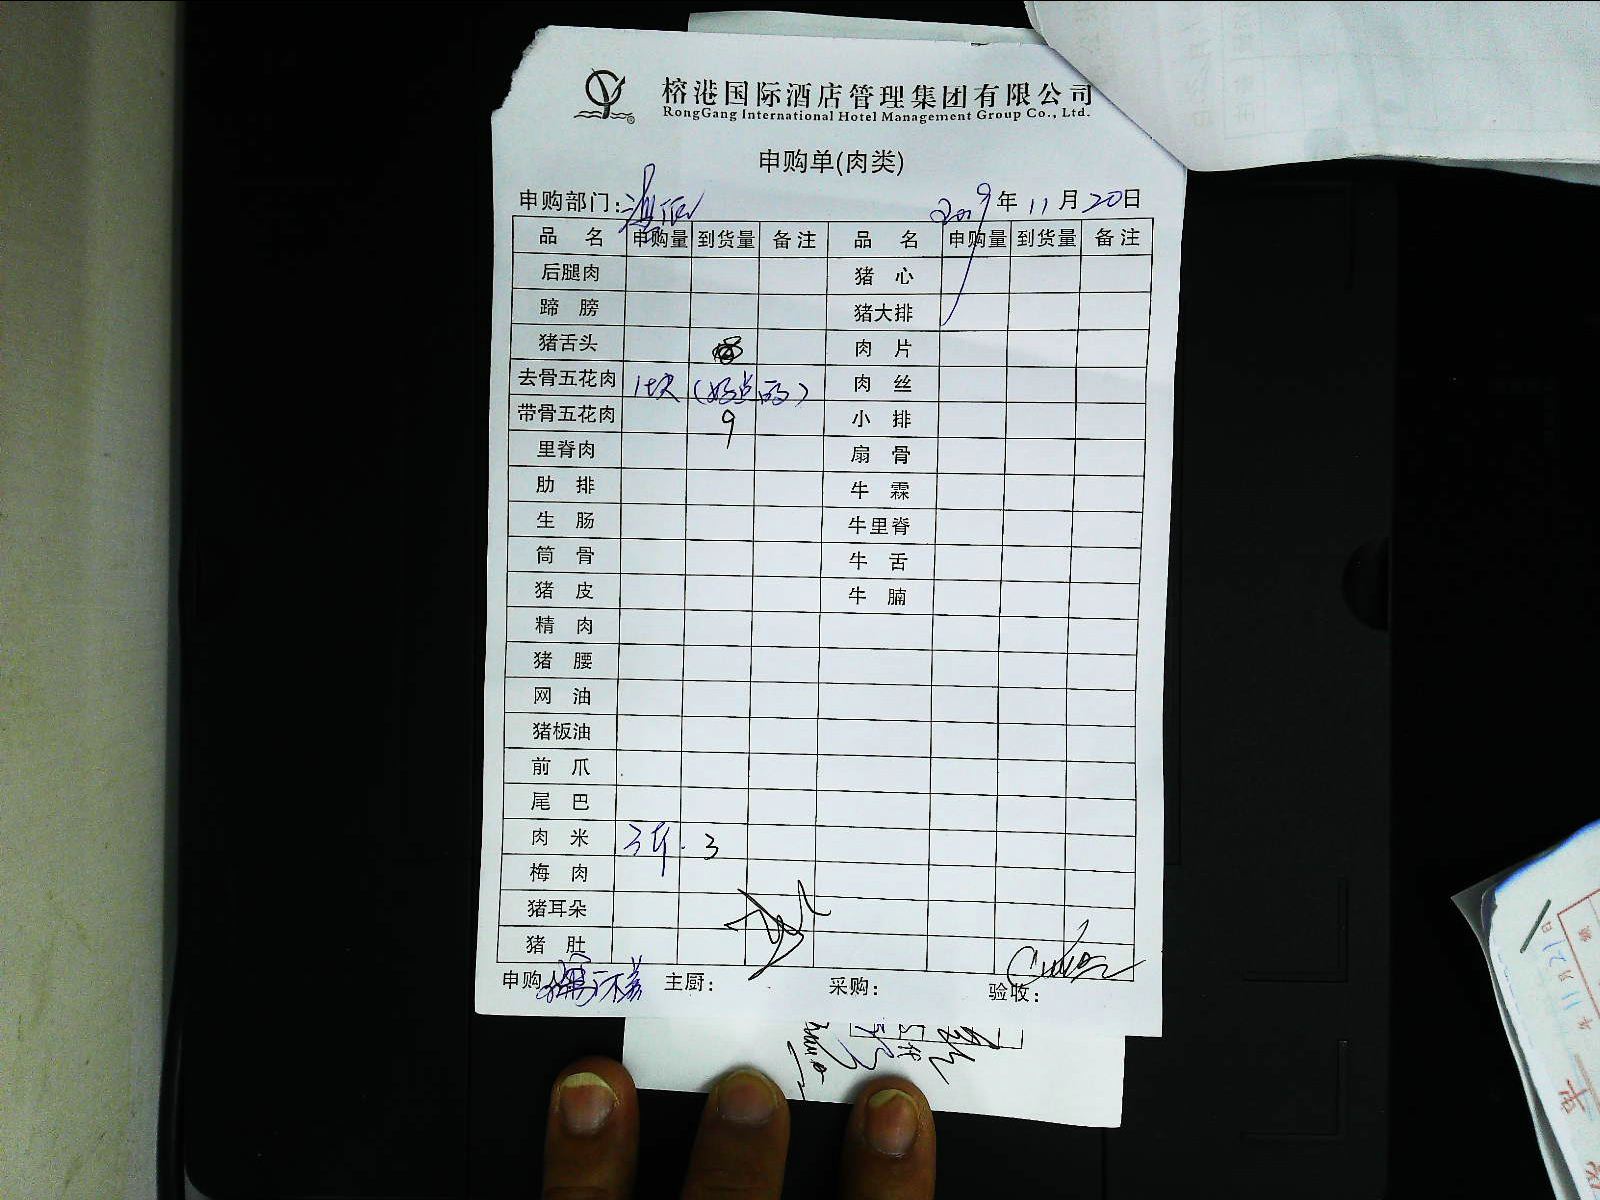 榕港国际酒店管理集团有限公司
RongGang International Hotel Management Group Co., Ltd.
申购单(肉类)
申购部门: 2019年11月20日
品 名 申购量 到货量 备注 品 名 申购量 到货量 备注
后腿肉 猪 心
蹄 膀 猪大排
猪舌头 肉 片
去骨五花肉 1块 (好点的) 肉 丝
带骨五花肉 9 小 排
里脊肉 扇 骨
肋 排 牛 霖
生 肠 牛里脊
筒 骨 牛 舌
猪 皮 牛 腩
精 肉
猪 腰
网 油
猪板油
前 爪
尾 巴
肉 米 3斤 3
梅 肉
猪耳朵
猪 肚
申购人 主厨: 采购: 验收: